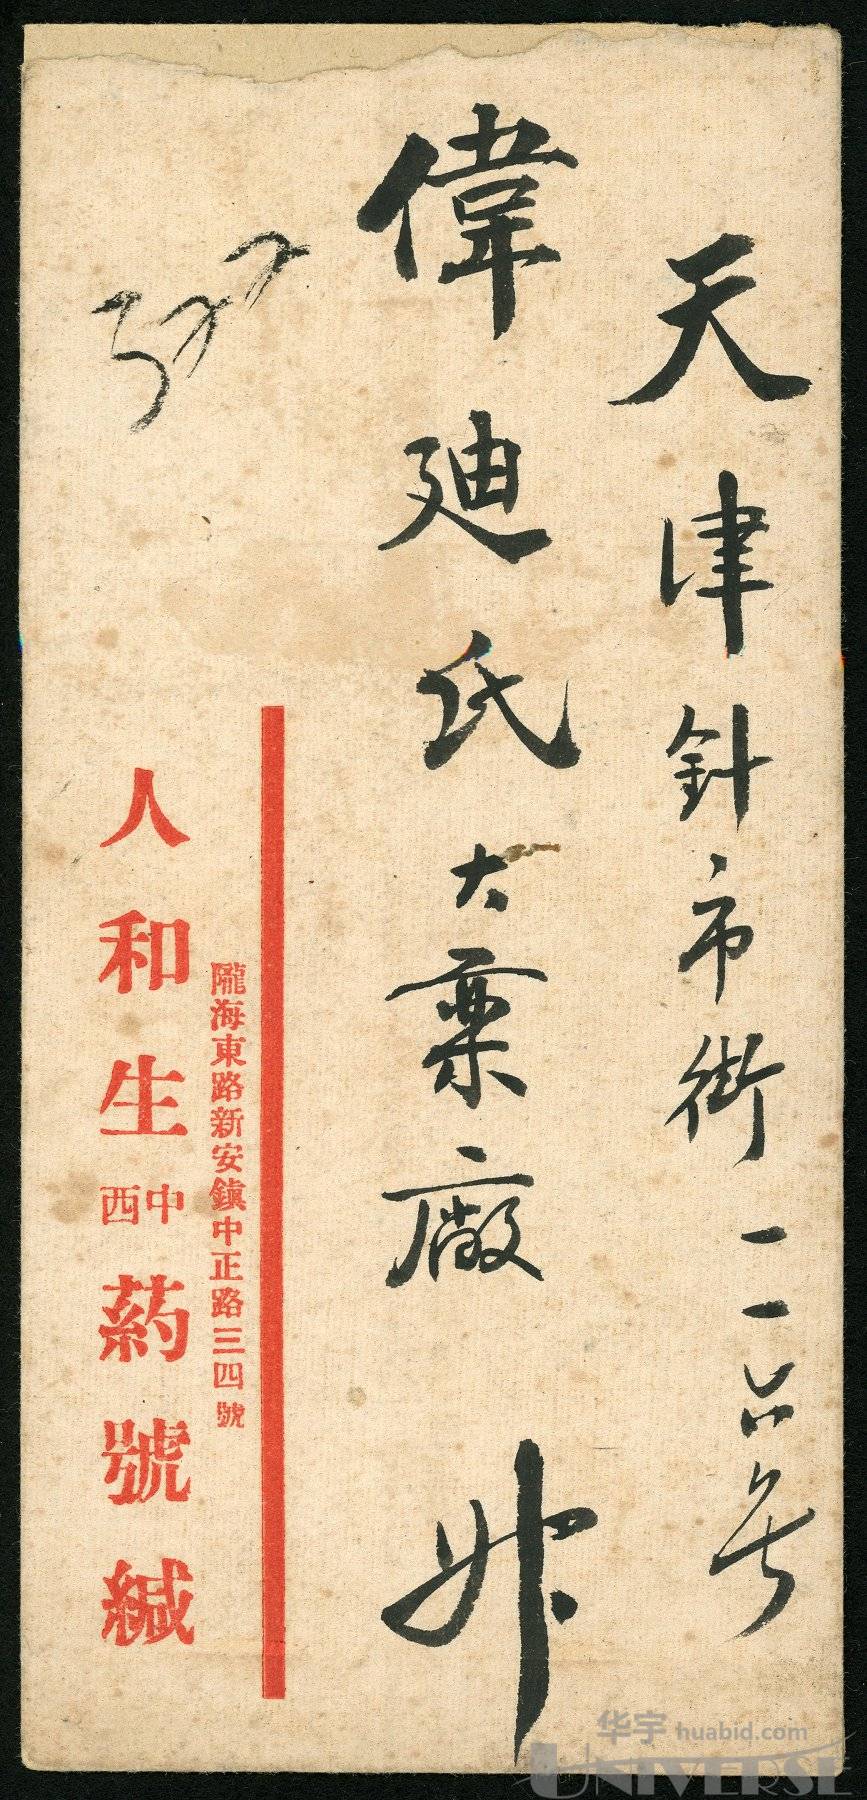 天津針市街一一六号
偉廸氏大藥廠
隴海東路新安鎮中正路三四號
人和生中西葯號緘
华宇 huabid.com
UNIVERSE